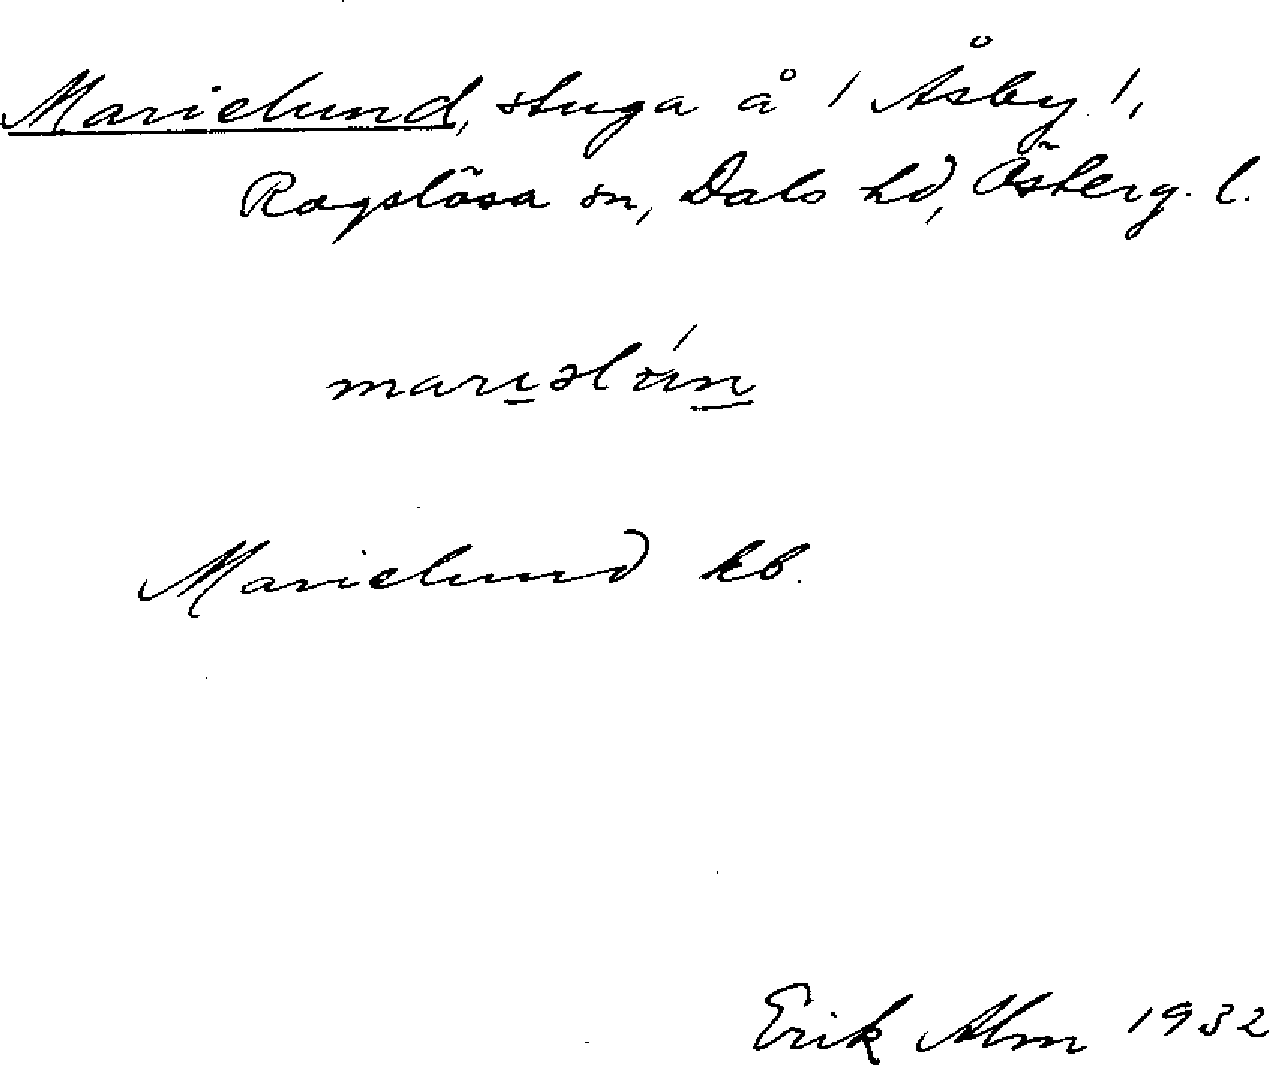 Marielund, stuga å 1 Åsby 1,
Rogslösa sn, Dals hd, Österg. l.
Marielund kb.
Erik Alm 1932